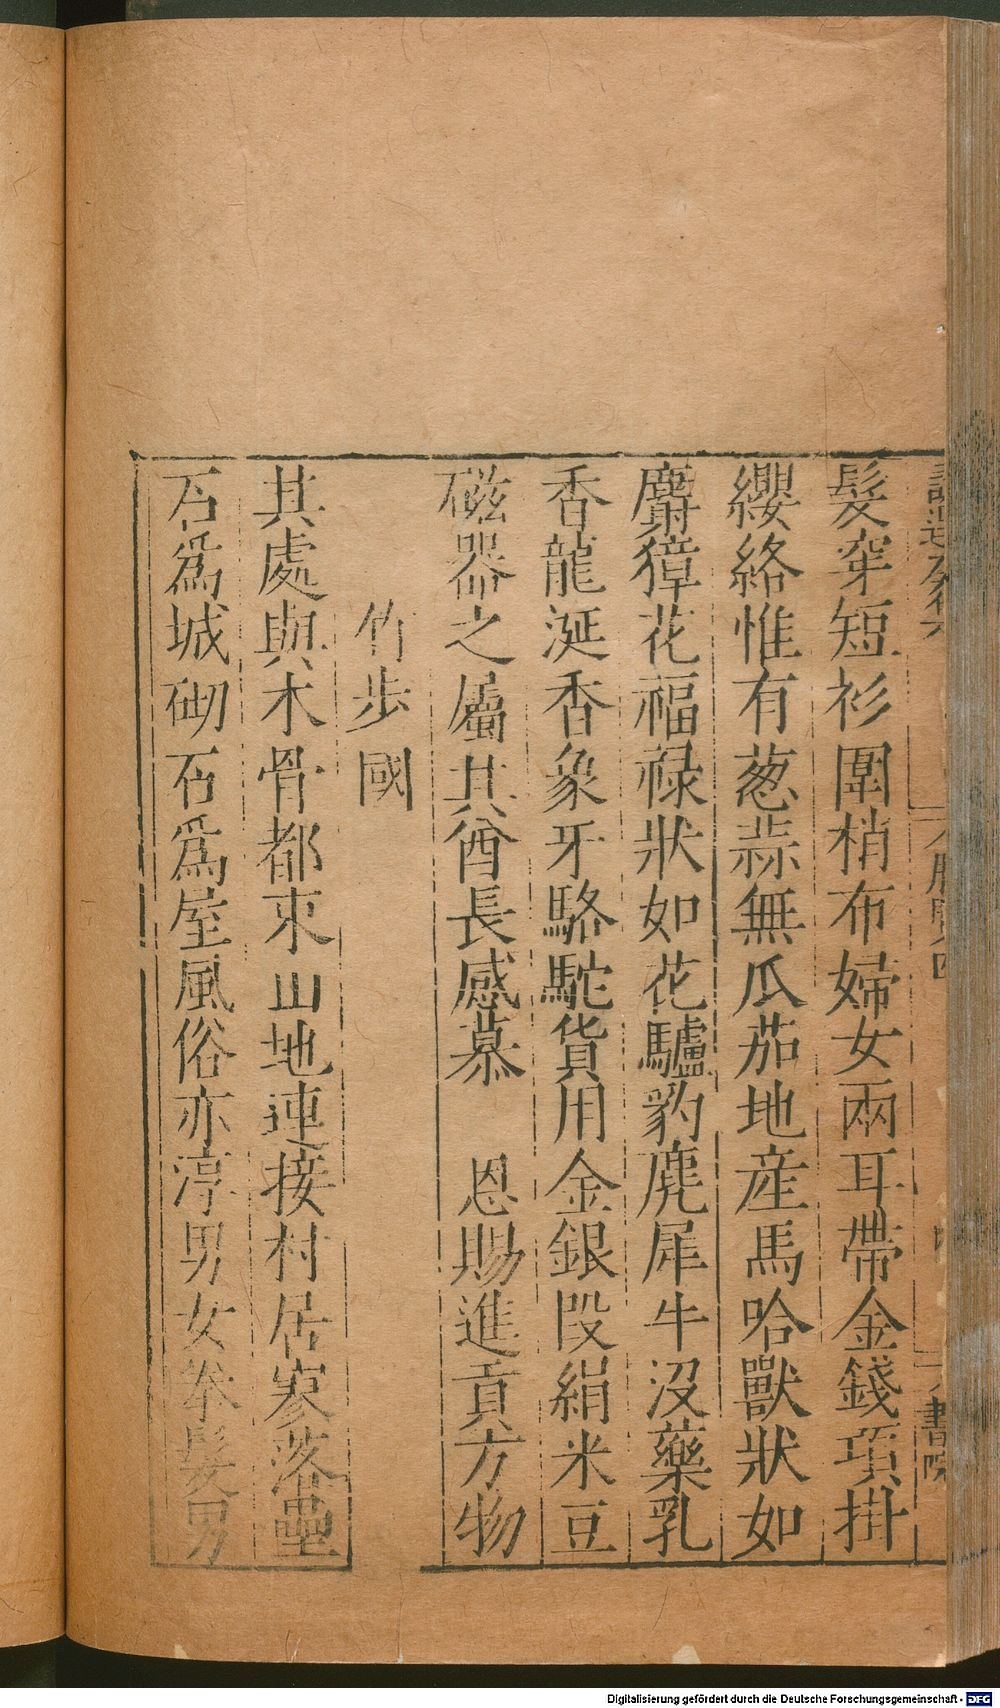 髮穿短衫圍梢布婦女兩耳帶金錢項掛
纓絡惟有葱蒜無瓜茄地産馬哈獸狀如
麝獐花福禄狀如花驢豹麂犀牛沒藥乳
香龍涎香象牙駱駝貨用金銀段絹米豆
磁器之屬其酋長感慕　恩賜進貢方物
竹步國
其處與木骨都朿山地連接村居寥落壘
石爲城砌石爲屋風俗亦淳男女拳髮男
書院
Digitalisierung gefördert durch die Deutsche Forschungsgemeinschaft - DFG